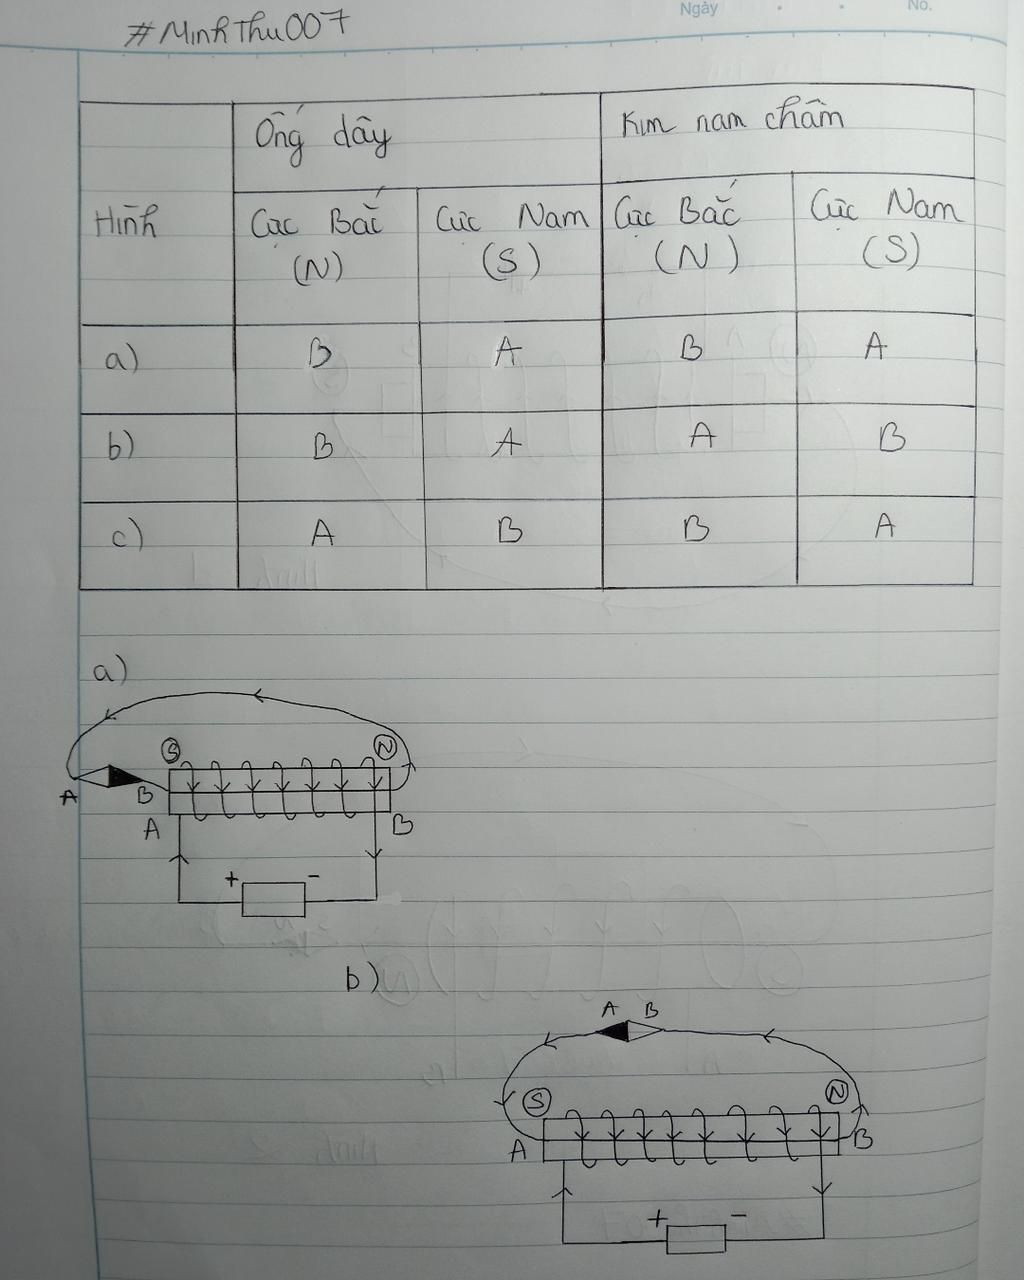 Ngày
No.
#MinhThu007
Ống dây Kim nam châm
Hình Cực Bắc Cực Nam Cực Bắc Cực Nam
(N) (S) (N) (S)
a) B A B A
b) B A A B
c) A B B A
a)
S N
A B
A B
+ -
b)
A B
S N
A B
+ -